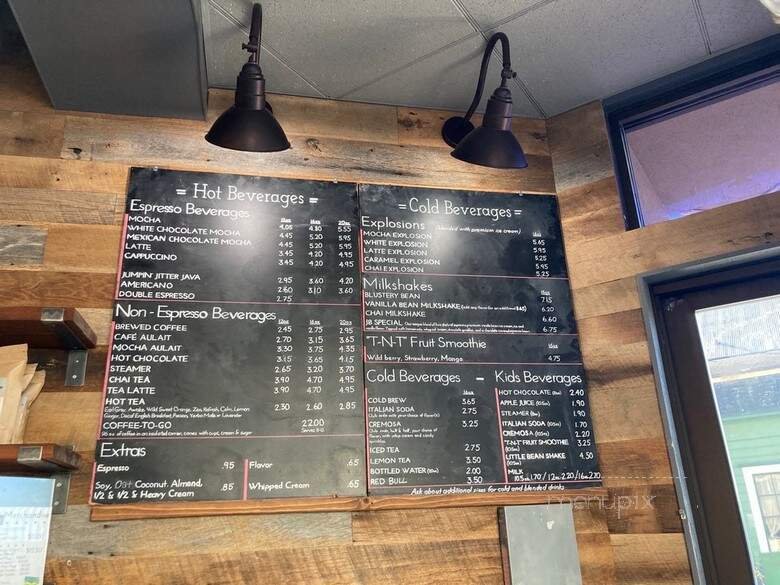 = Hot Beverages =
Espresso Beverages 12oz 16oz 20oz
MOCHA 4.05 4.80 5.55
WHITE CHOCOLATE MOCHA 4.45 5.20 5.95
MEXICAN CHOCOLATE MOCHA 4.45 5.20 5.95
LATTE 3.45 4.20 4.95
CAPPUCCINO 3.45 4.20 4.95
JUMPIN' JITTER JAVA 2.95 3.60 4.20
AMERICANO 2.60 3.10 3.60
DOUBLE ESPRESSO 2.75
Non - Espresso Beverages 12oz 16oz 20oz
BREWED COFFEE 2.45 2.75 2.95
CAFÉ AULAIT 2.70 3.15 3.65
MOCHA AULAIT 3.30 3.75 4.35
HOT CHOCOLATE 3.15 3.65 4.15
STEAMER 2.65 3.20 3.70
CHAI TEA 3.90 4.70 4.95
TEA LATTE 3.90 4.70 4.95
HOT TEA 2.30 2.60 2.85
Earl Grey, Awake, Wild Sweet Orange, Zen, Refresh, Calm, Lemon
Ginger, Decaf English Breakfast, Passion, Yerba Mate or Lavender
COFFEE-TO-GO 22.00
96 oz of coffee in an insulated carrier, comes with cups, cream & sugar Serves 8-12
Extras
Espresso .95
Flavor .65
Soy, Oat Coconut, Almond,
1/2 & 1/2 & Heavy Cream .85
Whipped Cream .65
= Cold Beverages =
Explosions (blended with premium ice cream) 16oz
MOCHA EXPLOSION 5.45
WHITE EXPLOSION 5.95
LATTE EXPLOSION 5.25
CARAMEL EXPLOSION 5.95
CHAI EXPLOSION 5.25
Milkshakes 16oz
BLUSTERY BEAN 7.15
VANILLA BEAN MILKSHAKE (add any flavor for an additional $.65) 6.20
CHAI MILKSHAKE 6.60
JB SPECIAL 6.75
"T-N-T" Fruit Smoothie 16oz
Wild berry, Strawberry, Mango 4.75
Cold Beverages - Kids Beverages
16oz
COLD BREW 3.65
ITALIAN SODA 2.75
CREMOSA 3.25
ICED TEA 2.75
LEMON TEA 3.50
BOTTLED WATER 2.00
RED BULL 3.50
HOT CHOCOLATE (8oz) 2.40
APPLE JUICE (10.5oz) 1.90
STEAMER (8oz) 1.90
ITALIAN SODA (10.5oz) 1.70
CREMOSA (10.5oz) 2.20
"T-N-T" FRUIT SMOOTHIE (10.5oz) 3.25
LITTLE BEAN SHAKE (10.5oz) 4.50
MILK
10.5oz 1.70 / 12oz 2.20 / 16oz 2.70
Ask about additional sizes for cold and blended drinks
menupix